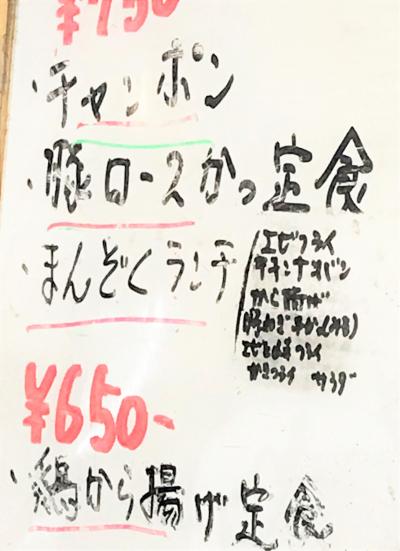 ¥750
・チャンポン
・豚ロースかつ定食
・まんぞくランチ
エビフライ
チキンナンバン
から揚げ
サラダ
¥650-
・鶏から揚げ定食